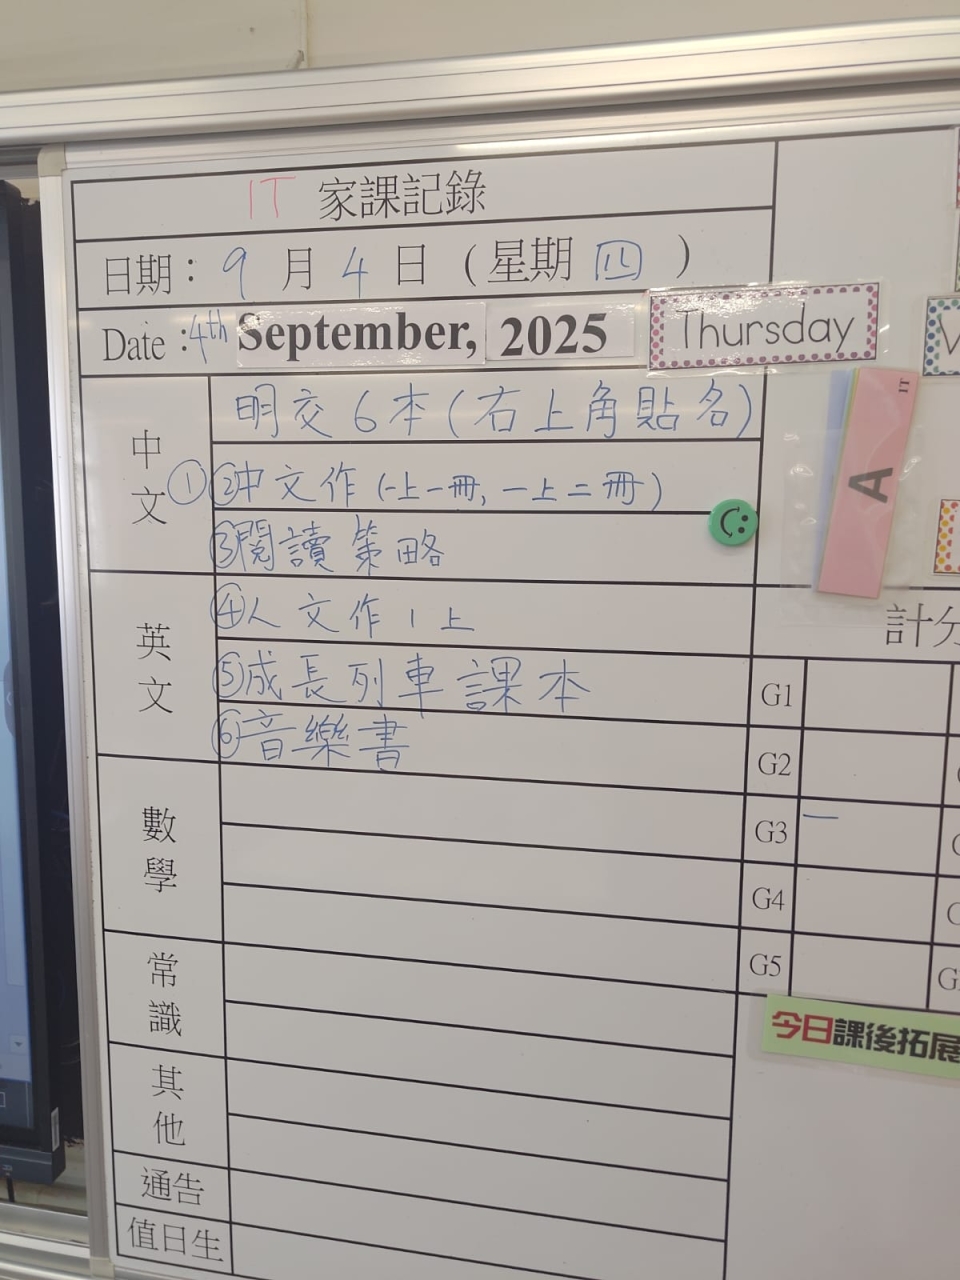 IT 家課記錄
日期：9月4日（星期四）
Date :4th September, 2025 Thursday
中文
明交6本(右上角貼名)
①②中文作(一上一冊,一上二冊)
③閱讀策略
英文
④人文作1上
⑤成長列車課本
⑥音樂書
數學
常識
其他
通告
值日生
IT
A
計分
G1
G2
G3 一
G4
G5
今日課後拓展